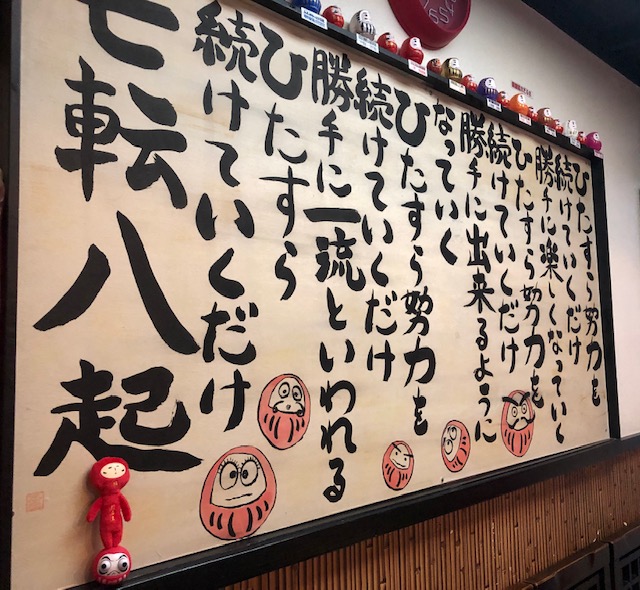 ひたすら努力を
続けていくだけ
勝手に楽しくなっていく
ひたすら努力を
続けていくだけ
勝手に出来るように
なっていく
ひたすら努力を
続けていくだけ
勝手に一流といわれる
ひたすら
続けていくだけ
七転八起